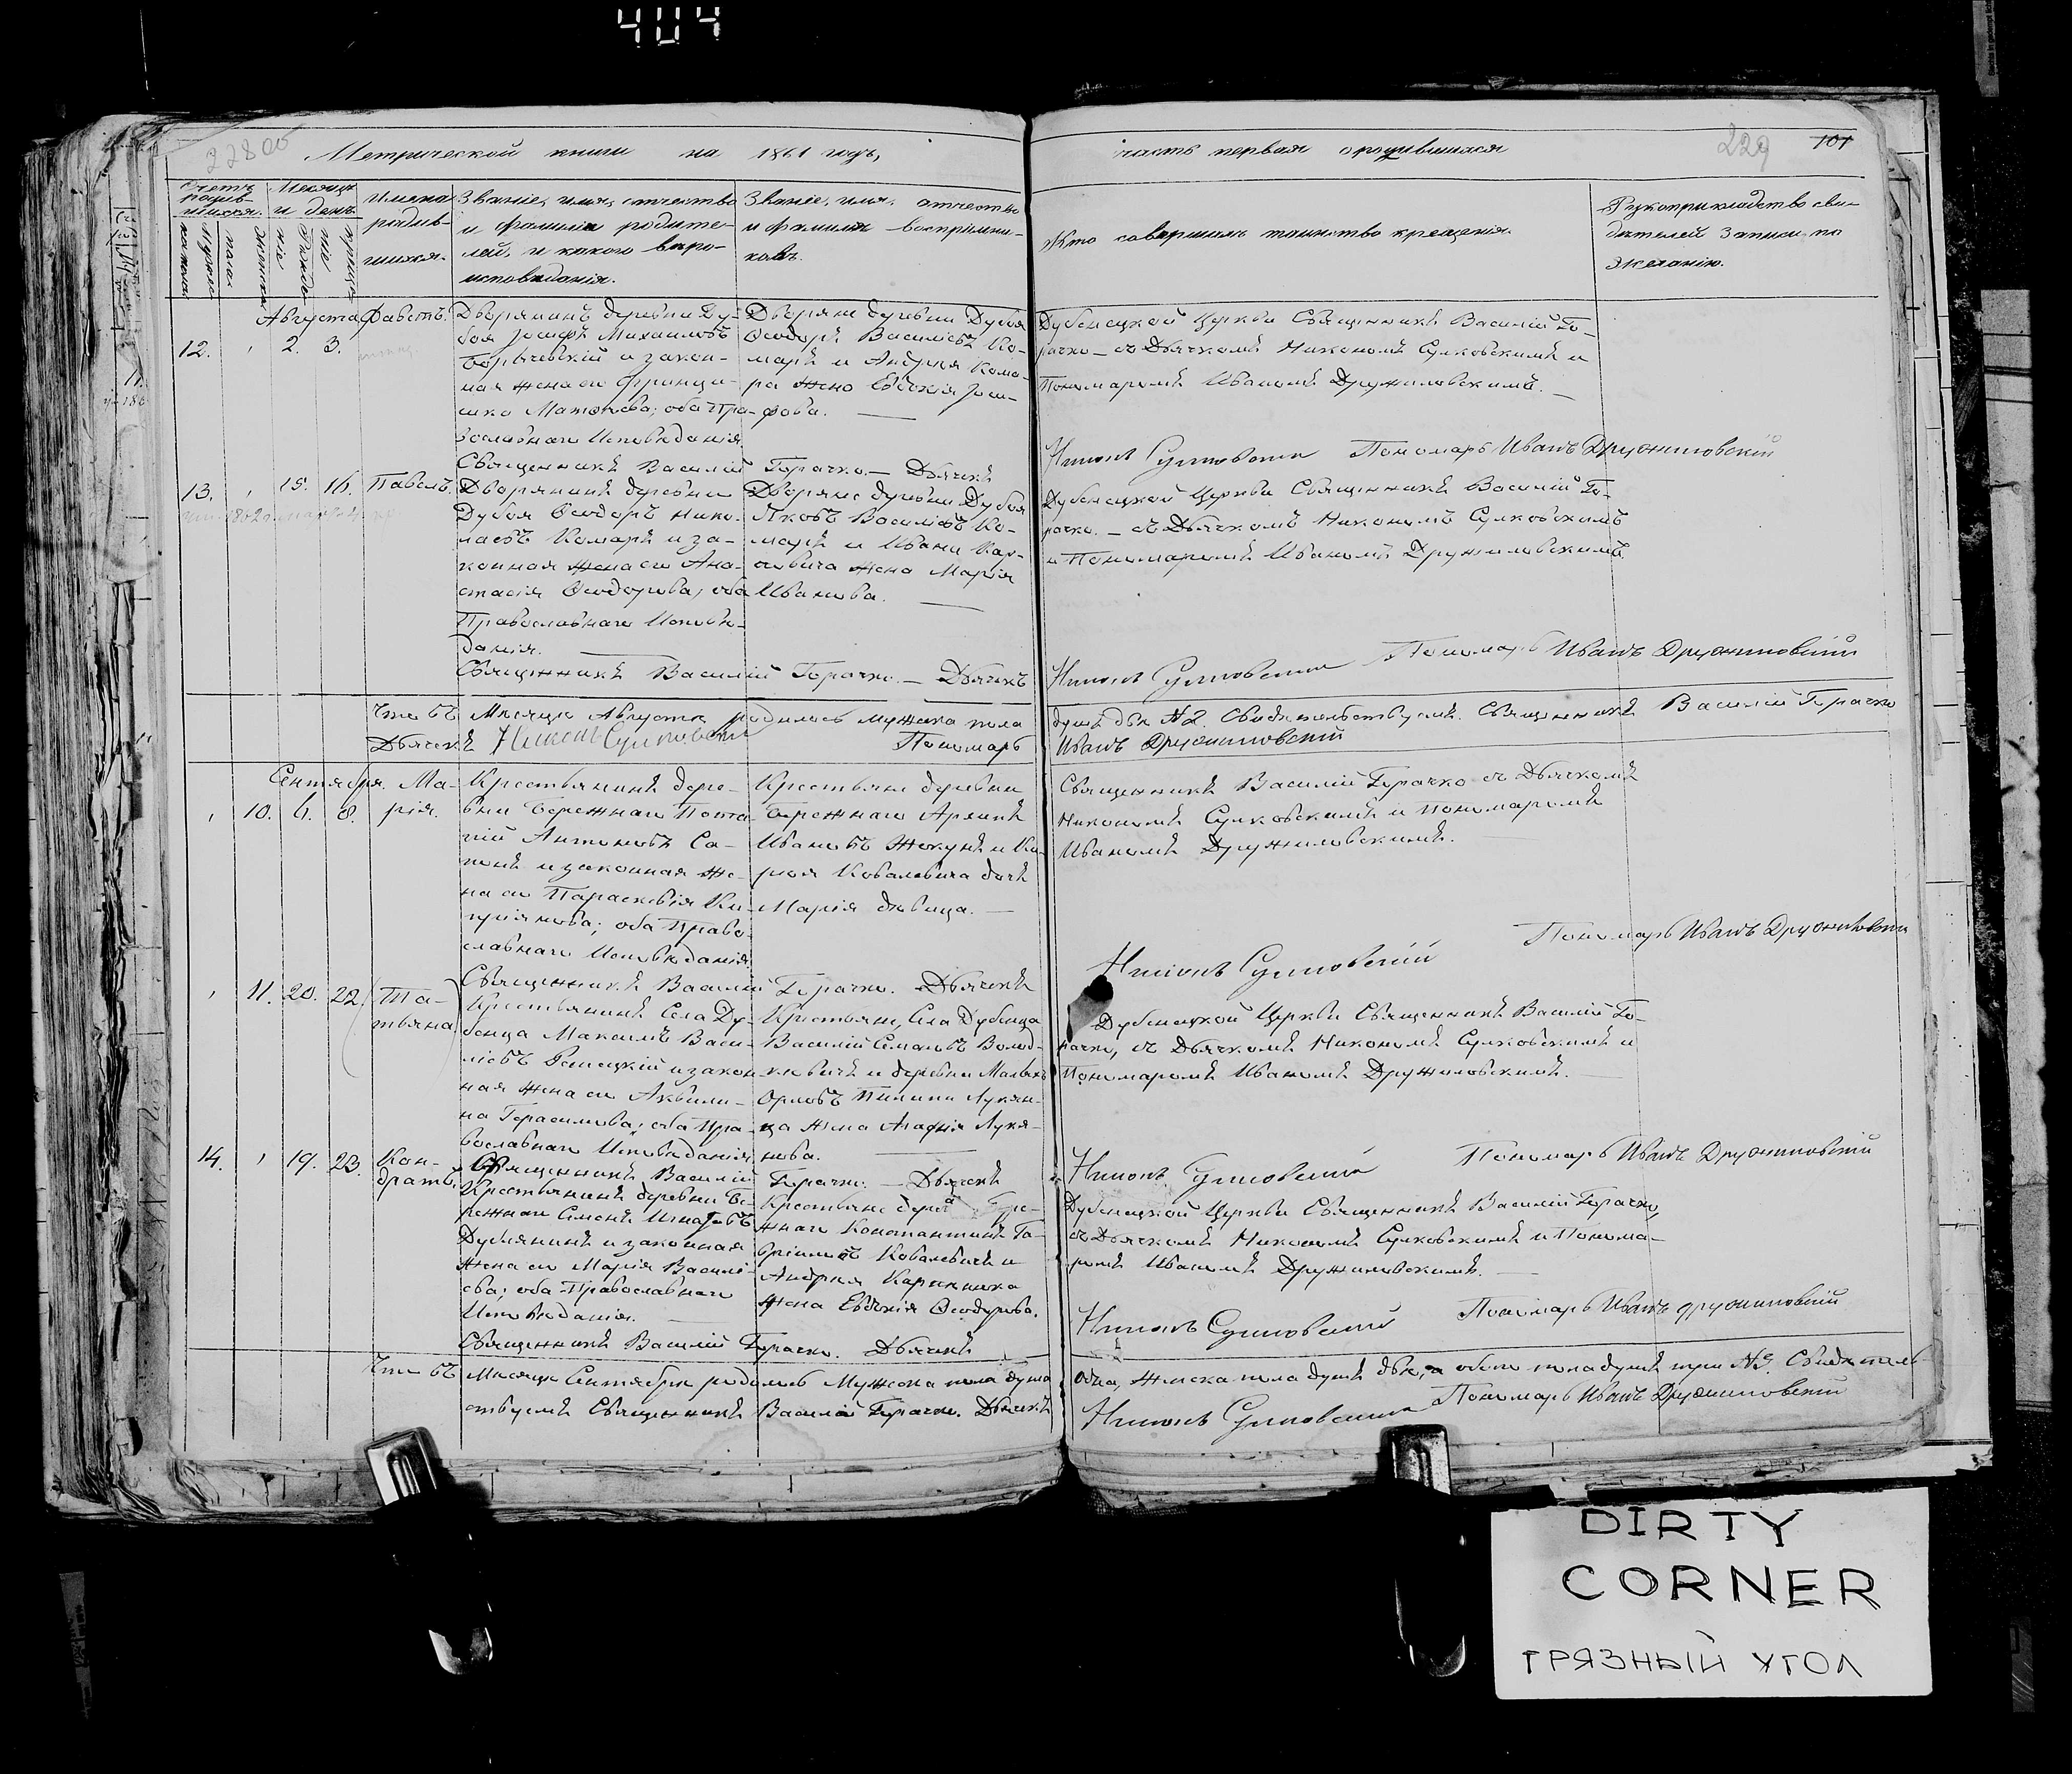 404
Метрической книги на 1861 годъ,
часть первая о родившихся
229 101
Счетъ родив-шихся.
Мужеска
пола
Женска
Месяцъ и день
Рожде-нія
Креще-нія
Имена
родив-
шихся.
Званіе, имя, отчество
и фамилія родите-
лей, и какого веро-
исповеданія.
Званіе, имя, отчество
и фамилія воспріемни-
ковъ.
Кто совершалъ таинство крещенія.
Рукоприкладство сви-
детелей записи по
желанію.
Августа
12. 2. 3.
Фавстъ.
Дворянинъ деревни Ду-
боя Іосифъ Михаиловъ
и закон-
ная жена его Франци-
шка; оба Пра-
вославнаго Исповѣданія
Дворяне деревни Дубоя
Ѳеодоръ Василіевъ Ко-
маръ и Андрея Кома-
ра жена Евдокія Іоси-
фова.
Дубенецкой Церкви Священникъ Василій Го-
рачко – съ Дьячкомъ Никономъ Сулковскимъ и
Пономаремъ Иваномъ Дружиловскимъ.
Священникъ Василій Горачко. – Дьячекъ
Никонъ Сулковскій Пономарь Иванъ Дружиловскій
13. 15. 16. Павелъ.
Дворянинъ деревни
Дубоя Ѳеодоръ Нико-
лаевъ Комаръ и за-
конная жена его Ана-
стасія Ѳеодорова; оба
Православнаго Исповѣ-
данія.
Дворяне деревни Дубоя
Яковъ Василіевъ Ко-
маръ и Ивана Кар-
повича жена Марія
Иванова.
Дубенецкой Церкви Священникъ Василій Го-
рачко. – съ Дьячкомъ Никономъ Сулковскимъ
и Пономаремъ Иваномъ Дружиловскимъ
Священникъ Василій Горачко. – Дьячекъ
Никонъ Сулковскій Пономарь Иванъ Дружиловскій
Что въ Месяце Августе родилось мужеска пола
душъ две № 2. Свидетельствуемъ. Священникъ Василій Горачко
Дьячекъ Никонъ Сулковскій Пономарь
Иванъ Дружиловскій
Сентября.
10. 6. 8.
Ма-
рія.
Крестьянинъ дере-
вни Бережнаго Пота-
пій Антоновъ Са-
и законная же-
на его Параскевія Ки-
пріянова; оба Право-
славнаго Исповѣданія.
Крестьяне деревни
Бережнаго
Ивановъ и Ки-
рея Ковалевича дочь
Марія девица.
Священникъ Василій Горачко съ Дьячкомъ
Никономъ Сулковскимъ и Пономаремъ
Иваномъ Дружиловскимъ.
Священникъ Василій Горачко. Дьячекъ
Никонъ Сулковскій Пономарь Иванъ Дружиловскій
11. 20. 22.
Та-
тьяна
Крестьянинъ Села Ду-
бенца Максимъ Васи-
ліевъ и закон-
ная жена его Аквили-
на Герасимова; оба Пра-
вославнаго Исповеданія
Крестьяне, Села Дубенца
Василій Семеновъ Волод-
кевичъ и деревни Малыхъ
Орловъ Лукян-
ца жена Агафія Лукя-
нова.
Дубенецкой Церкви Священникъ Василій Го-
рачко, съ Дьячкомъ Никономъ Сулковскимъ и
Пономаремъ Иваномъ Дружиловскимъ.
Священникъ Василій Горачко. – Дьячекъ
Никонъ Сулковскій Пономарь Иванъ Дружиловскій
14. 19. 23.
Кон-
дратъ.
Крестьянинъ деревни Бе-
режнаго Семенъ Игнатовъ
и законная
жена его Марія Василі-
ева; оба Православнаго
Исповеданія.
Крестьяне Бере-
жнаго Константинъ Га-
вріиловъ Ковалевичъ и
Андрея
жена Евдокія Ѳеодорова.
Дубенецкой Церкви Священникъ Василій Горачко,
съ Дьячкомъ Никономъ Сулковскимъ и Понома-
ремъ Иваномъ Дружиловскимъ.
Священникъ Василій Горачко. Дьячекъ
Никонъ Сулковскій Пономарь Иванъ Дружиловскій
Что въ Месяце Сентябре родилось Мужеска пола душа
одна, женска пола душъ две, а обоего пола душъ три № 3. Свидетель-
ствуемъ Священникъ Василій Горачко. Дьячекъ
Никонъ Сулковскій Пономарь Иванъ Дружиловскій
DIRTY
CORNER
ГРЯЗНЫЙ УГОЛ